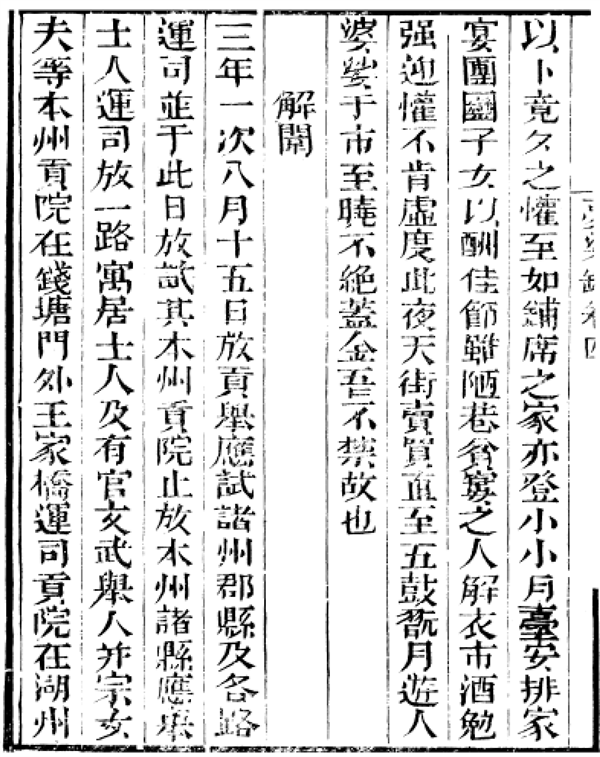 以卜竟夕之懽至如鋪席之家亦登小小月臺安排家
宴團圞子女以酬佳節雖陋巷貧窶之人解衣市酒勉
强迎懽不肯虛度此夜天街賣買直至五鼓翫月遊人
婆娑于市至曉不絶蓋金吾不禁故也
解闈
三年一次八月十五日放貢舉應試諸州郡縣及各路
運司並于此日放試其本州貢院止放本州諸縣應舉
士人運司放一路寓居士人及有官文武舉人并宗女
夫等本州貢院在錢塘門外王家橋運司貢院在湖州